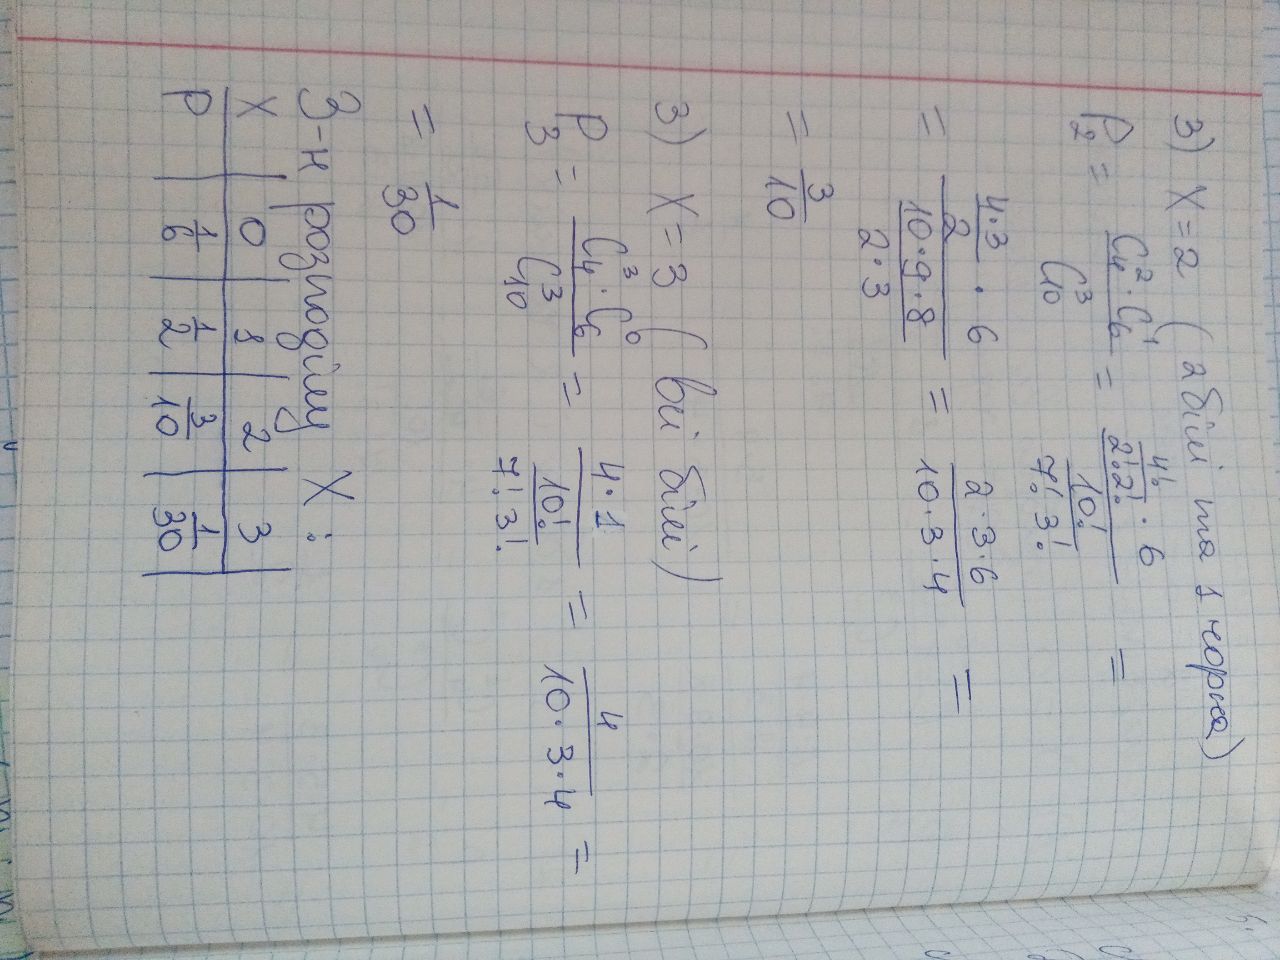 3) X=2 (2 білі та 1 чорна)
P₂ = (C₄² · C₆¹) / C₁₀³ = (4!/(2!2!) · 6) / (10!/(7! 3!)) =
= ((4·3)/2 · 6) / ((10·9·8)/(2·3)) = (2·3·6)/(10·3·4) =
= 3/10
3) X=3 (всі білі)
P₃ = (C₄³ · C₆⁰) / C₁₀³ = (4·1) / (10!/(7! 3!)) = 4/(10·3·4) =
= 1/30
З-н розподілу X:
X | 0 | 1 | 2 | 3 |
P | 1/6 | 1/2 | 3/10 | 1/30 |